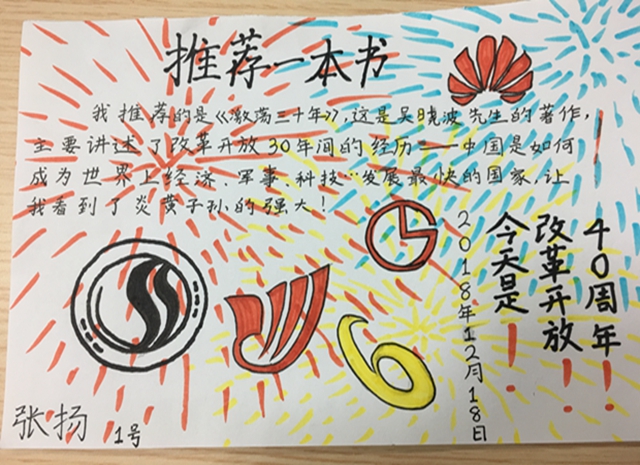 推荐一本书
我推荐的是《激荡三十年》,这是吴晓波先生的著作,
主要讲述了改革开放30年间的经历——中国是如何
成为世界上经济、军事、科技…发展最快的国家,让
我看到了炎黄子孙的强大!
40周年!
改革开放!
今天是!
2018年12月18日
张扬
1号